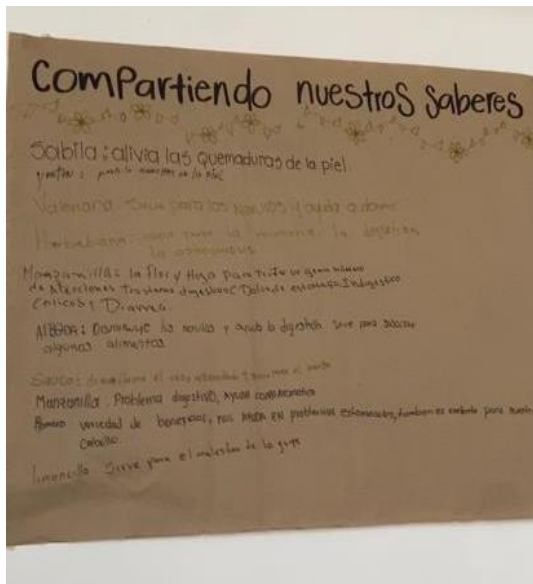 Compartiendo nuestros Saberes
Sabila: alivia las quemaduras de la piel.
para la en la piel
Valeriana. Sirve para los nervios y ayuda a dormir
Hierbabuena: para la memoria la digestion
Manzanilla: la flor y Hoja para tratar un gran número
de Afecciones Trastornos digestivos Dolor de estomago Indigestion
Colicos y Diarrea.
Disminuye los nervios y ayuda la digestión Sirve para
algunos alimentos
Sauco: disminuye el
Manzanilla. Problema digestivo, Ayuda
Romero variedad de beneficios, nos Ayuda en problemas estomacales, tambien es para nuestro
Cabello.
limoncillo Sirve para el malestar de la gripa